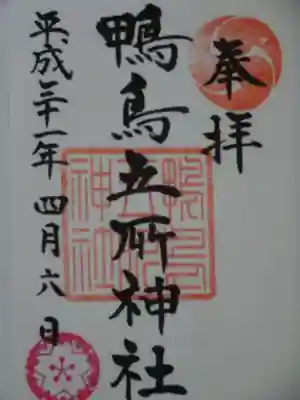 奉拝
鴨鳥五所神社
平成二十一年四月六日